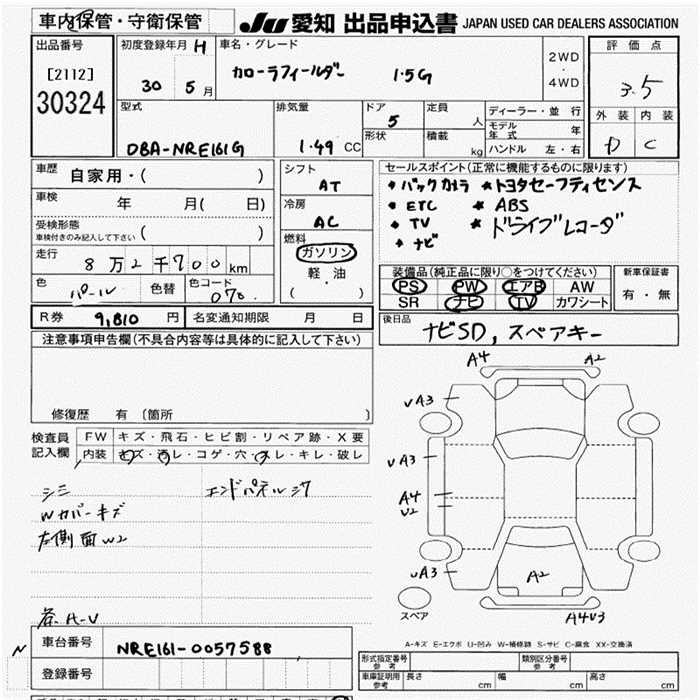 車内保管・守衛保管 JU 愛知 出品申込書 JAPAN USED CAR DEALERS ASSOCIATION
出品番号
[2112]
30324
初度登録年月 H
30 5 月
車名・グレード
カローラフィールダー 1.5G
2WD
・
4WD
評価点
3.5
外装 内装
D C
型式
DBA-NRE161G
排気量
1.49 CC
ドア
5
定員
人
形状
積載
kg
ディーラー・並行
モデル年式 年
ハンドル 左・右
車歴
自家用・( )
車検
年 月( 日)
受検形態
車検付きのみ記入して下さい ( )
走行
8万2千700km
色
パール
色替
色コード
070
シフト
AT
冷房
AC
燃料
ガソリン
軽・油
( )
セールスポイント(正常に機能するものに限ります)
バックカメラ ★トヨタセーフティセンス
ETC ★ABS
TV ★ドライブレコーダ
ナビ
装備品(純正品に限り○をつけてください)
PS PW エアB AW
SR ナビ TV カワシート
新車保証書
有・無
R券 9,810 円 名変通知期限 月 日
後日品
ナビSD, スペアキー
注意事項申告欄(不具合内容等は具体的に記入して下さい)
修復歴 有 〔箇所 〕
検査員
記入欄
FW キズ・飛石・ヒビ割・リペア跡・X要
内装 キズ・汚レ・コゲ・穴・スレ・キレ・破レ
シミ
Wカバーキズ
左側面W2
エンドパネルシワ
各A-V
A4 A2
VA3
VA3
A4
U2
VA3
A2
A4V3
スペア
A-キズ E-エクボ U-凹み W-補修跡 S-サビ C-腐食 XX-交換済
N
車台番号 NRE161-0057588
登録番号
形式指定番号
参考
類別区分番号
参考
車庫証明用
参考
長さ cm 幅 cm 高さ cm